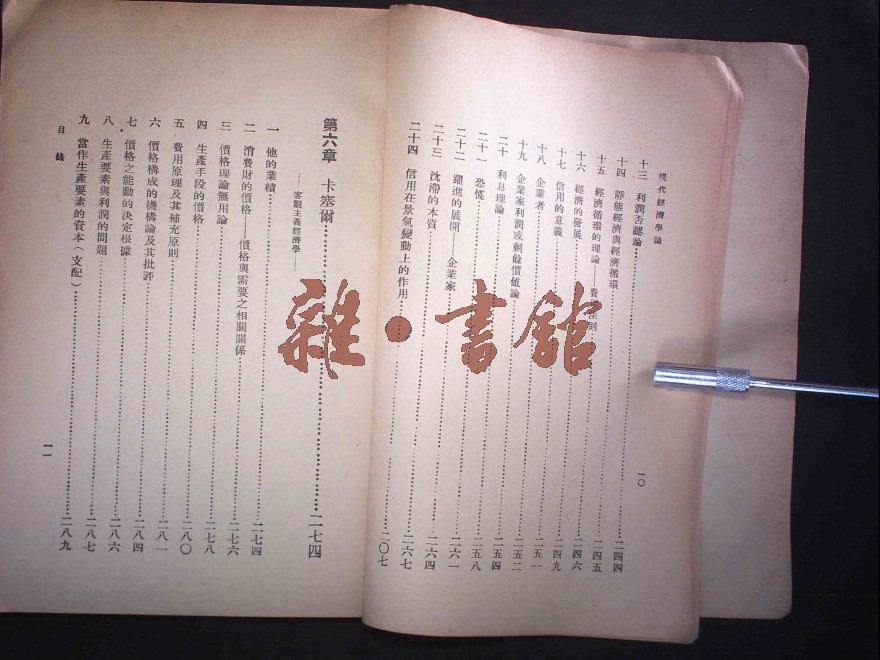 現代經濟學論
一〇
十三 利潤否認論……二四四
十四 靜態經濟與經濟循環……二四五
十五 經濟循環的理論——費則……二四六
十六 經濟的發展……二四九
十七 信用的意義……二五一
十八 企業者……二五二
十九 企業家利潤或剩餘價値論……二五四
二十 利息理論……二五八
二十一 恐慌……二六一
二十二 躍進的展開——企業家……二六四
二十三 沈滯的本質……二六七
二十四 信用在景氣變動上的作用……二〇七
第六章 卡塞爾……二七四
——客觀主義經濟學——
一 他的業績……二七四
二 消費財的價格——價格與需要之相關關係……二七六
三 價格理論無用論……二七八
四 生產手段的價格……二八〇
五 費用原理及其補充原則……二八一
六 價格構成的機構論及其批評……二八四
七 價格之能動的決定根據……二八六
八 生產要素與利潤的問題……二八七
九 當作生產要素的資本（支配）……二八九
目錄
一一
雜·書館